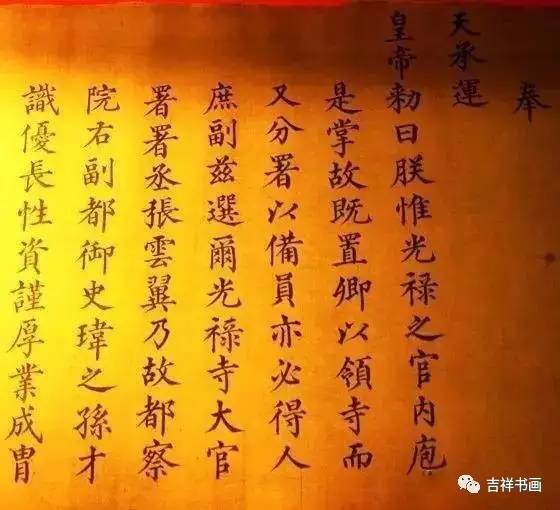 奉
天承運
皇帝勑曰朕惟光禄之官内庖
是掌故既置卿以領寺而
又分署以備員亦必得人
庶副兹選爾光禄寺大官
署署丞張雲翼乃故都察
院右副都御史瑋之孫才
識優長性資謹厚業成胄
吉祥书画